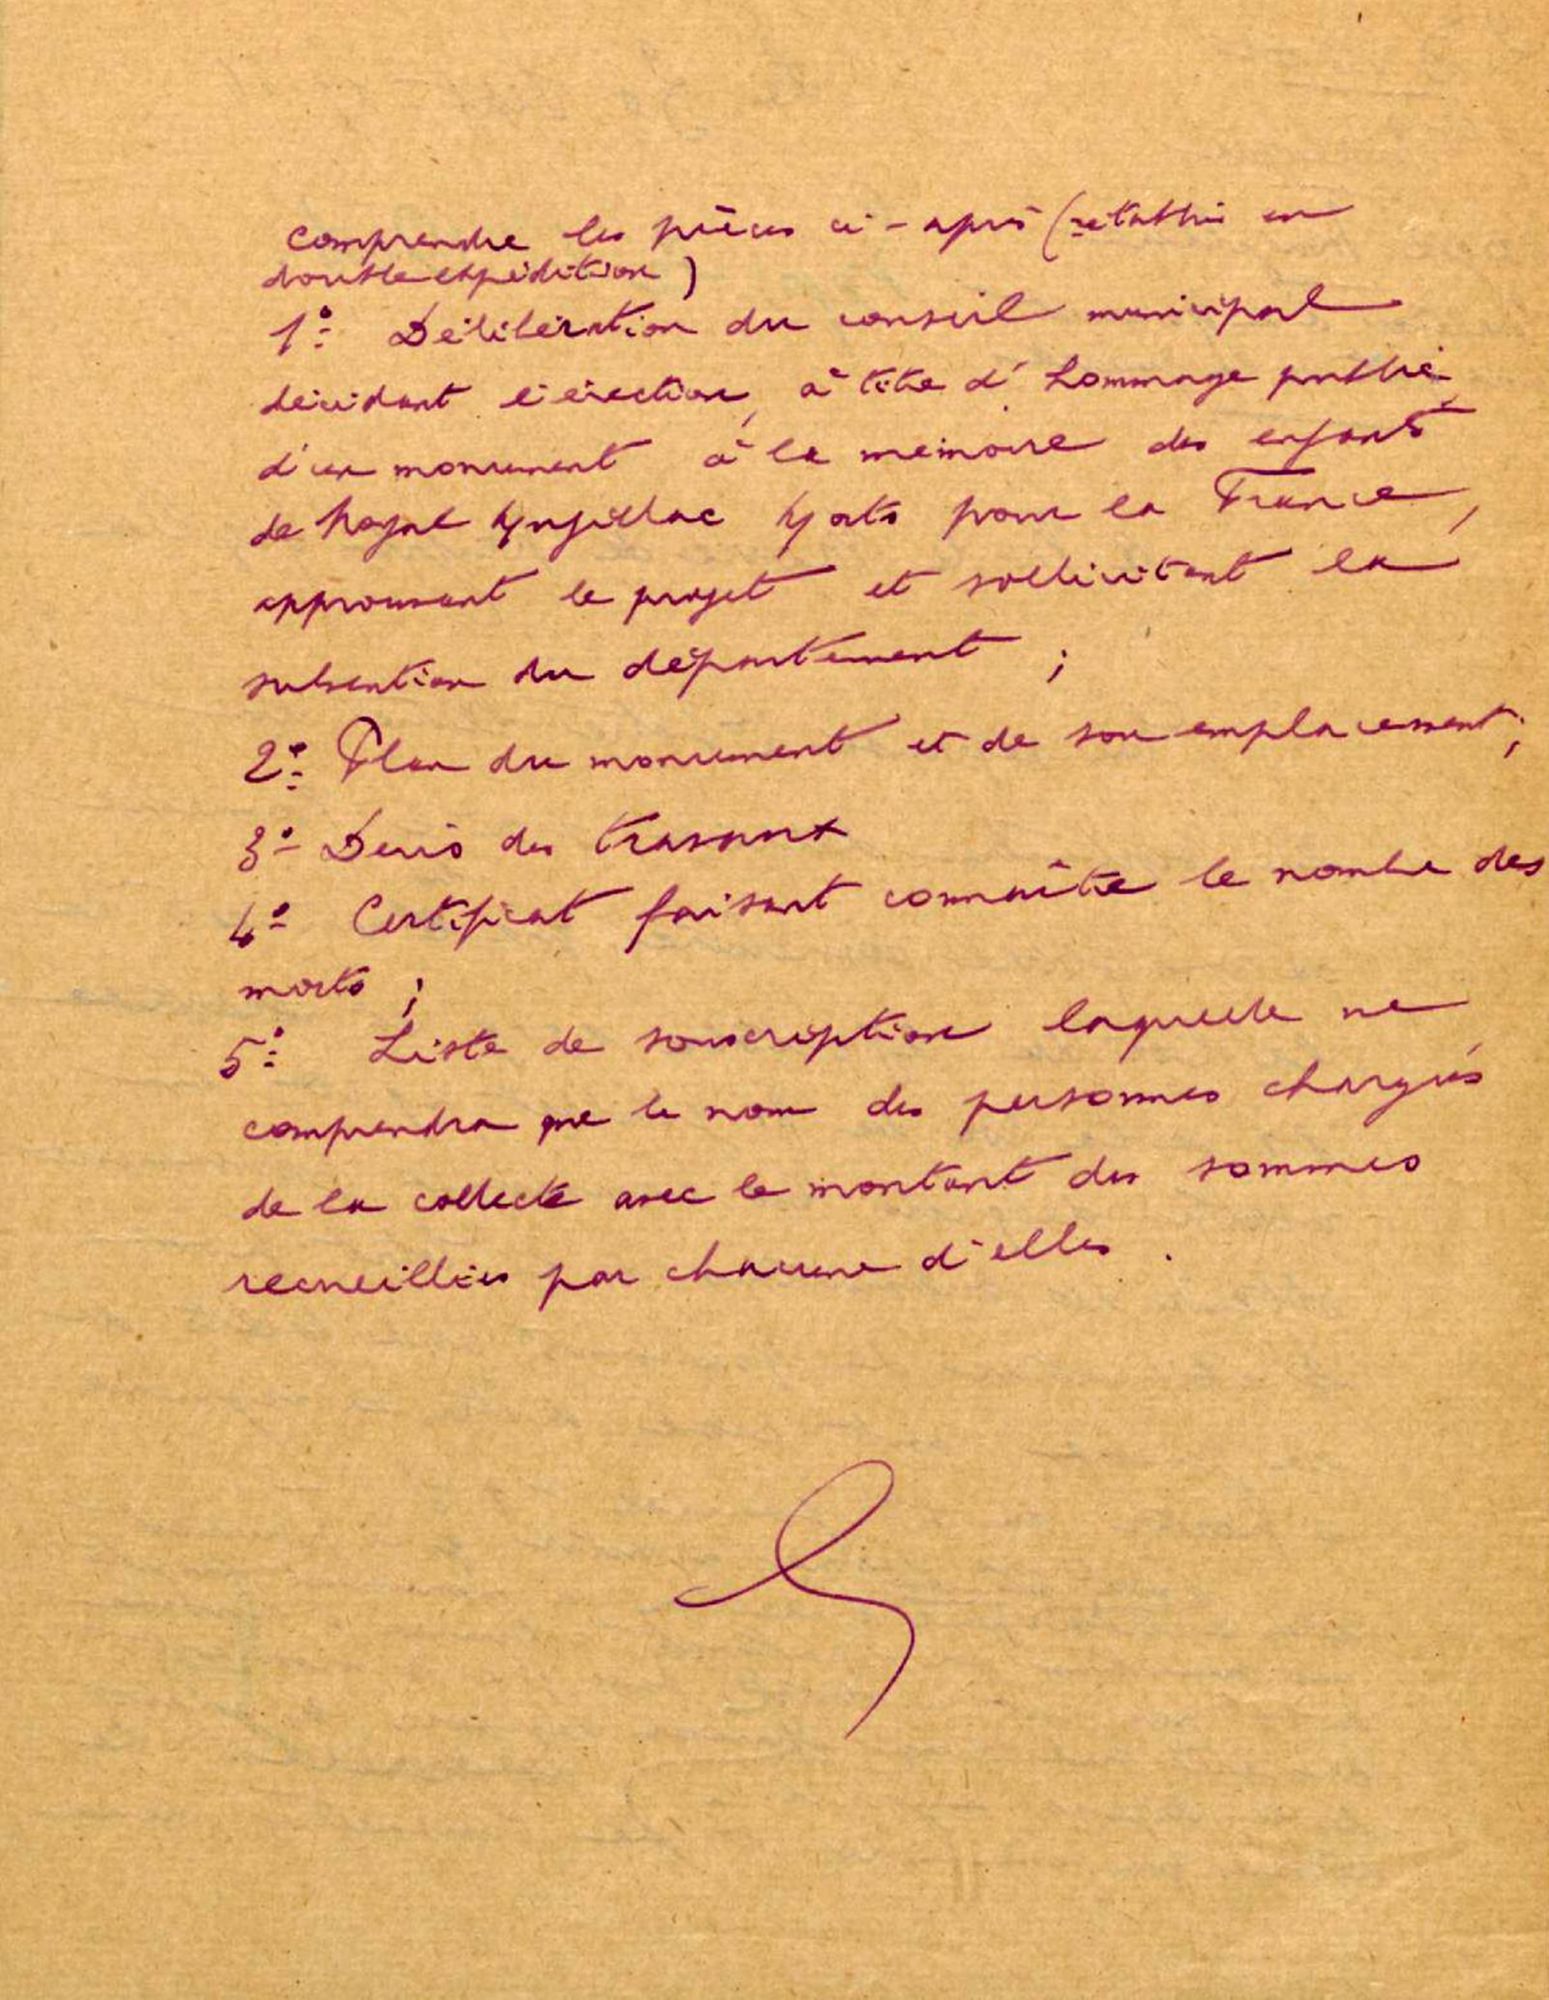 comprendre les pièces ci-après (rétablie en
double expédition)
1° Délibération du conseil municipal
décidant l'érection, à titre d'hommage public,
d'un monument à la mémoire des enfants
de Noyal Muzillac Morts pour la France,
approuvant le projet et sollicitant la
subvention du département ;
2° Plan du monument et de son emplacement ;
3° Devis des travaux
4° Certificat faisant connaître le nombre des
morts ;
5° Liste de souscription laquelle ne
comprendra que le nom des personnes chargées
de la collecte avec le montant des sommes
recueillies par chacune d'elles .